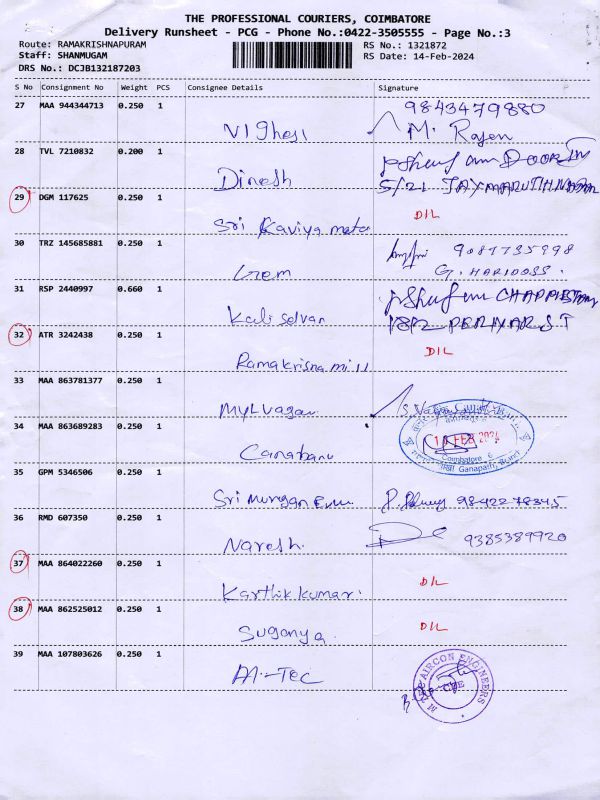 THE PROFESSIONAL COURIERS, COIMBATORE
Delivery Runsheet - PCG - Phone No.:0422-3505555 - Page No.:3
Route: RAMAKRISHNAPURAM RS No.: 1321872
Staff: SHANMUGAM RS Date: 14-Feb-2024
DRS No.: DCJB132187203
S No Consignment No Weight PCS Consignee Details Signature
27 MAA 944344713 0.250 1 9843479880
M. Rajen
28 TVL 7210832 0.200 1
Dinesh 5/21
29 DGM 117625 0.250 1 D/L
Sri Kaviya mata
30 TRZ 145685881 0.250 1
Gem G. HARIDOSS.
31 RSP 2440997 0.660 1
Kali selvan
32 ATR 3242438 0.250 1 D/L
Ramakrisna mill
33 MAA 863781377 0.250 1
Mylvagan
34 MAA 863689283 0.250 1 FEB 2024
Canabanu Coimbatore 6
Ganapathy
35 GPM 5346506 0.250 1
Sri Murugan 9842278345
36 RMD 607350 0.250 1 9385389920
Naresh.
37 MAA 864022260 0.250 1 D/L
Karthik kumar.
38 MAA 862525012 0.250 1 D/L
Suganya.
39 MAA 107803626 0.250 1
M-TEC AIRCON ENGINEERS
CBE